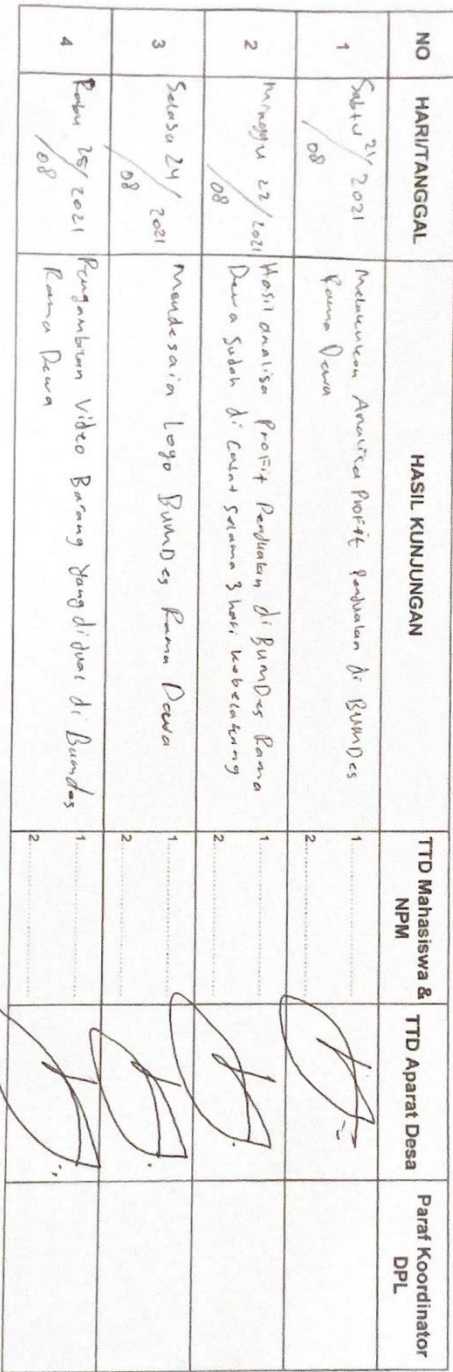 NO HARI/TANGGAL HASIL KUNJUNGAN TTD Mahasiswa & NPM TTD Aparat Desa Paraf Koordinator DPL
1 Sabtu 21/08 2021
Melakukan Analisa Profit Penjualan di BUMDes
Rama Dewa
1
2
2 Minggu 22/08 2021
Hasil analisa Profit Penjualan di BUMDes Rama
Dewa Sudah di Catat Selama 3 hari kebelakang
1
2
3 Selasa 24/08 2021
Mendesain Logo BUMDes Rama Dewa
1
2
4 Rabu 25/08 2021
Pengambilan Video Barang Yang dijual di Bumdes
Rama Dewa
1
2